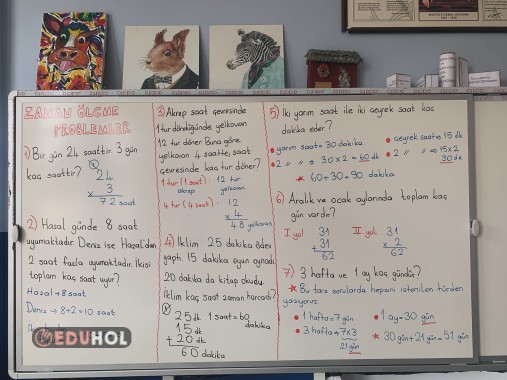 ZAMAN ÖLÇME
PROBLEMLER
1) Bir gün 24 saattir. 3 gün
kaç saattir?
24
x 3
72 saat
2) Hasal günde 8 saat
uyumaktadır. Deniz ise Hasal'dan
2 saat fazla uyumaktadır. İkisi
toplam kaç saat uyur?
Hasal → 8 saat
Deniz → 8+2=10 saat
EDUHOL
3) Akrep saat çevresinde
1 tur döndüğünde yelkovan
12 tur döner. Buna göre
yelkovan 4 saatte, saat
çevresinde kaç tur döner?
1 tur (1 saat) 12 tur
akrep yelkovan
4 tur (4 saat) 12
x 4
48 yelkovan
4) İklim 25 dakika ödev
yaptı. 15 dakika oyun oynadı.
20 dakika da kitap okudu.
İklim kaç saat zaman harcadı?
25 dk 1 saat = 60
dakika
15 dk
+ 20 dk
60 dakika
5) İki yarım saat ile iki çeyrek saat kaç
dakika eder?
yarım saat = 30 dakika
2 " " = 30 x 2 = 60 dk
çeyrek saat = 15 dk
2 " " = 15x2
30 dk
60+30 = 90 dakika
6) Aralık ve ocak aylarında toplam kaç
gün vardır?
I yol 31
+ 31
62
II yol 31
x 2
62
7) 3 hafta ve 1 ay kaç gündür?
Bu tarz sorularda hepsini istenilen türden
yazıyoruz.
1 hafta = 7 gün
3 hafta = 7x3
21 gün
1 ay = 30 gün
30 gün + 21 gün = 51 gün